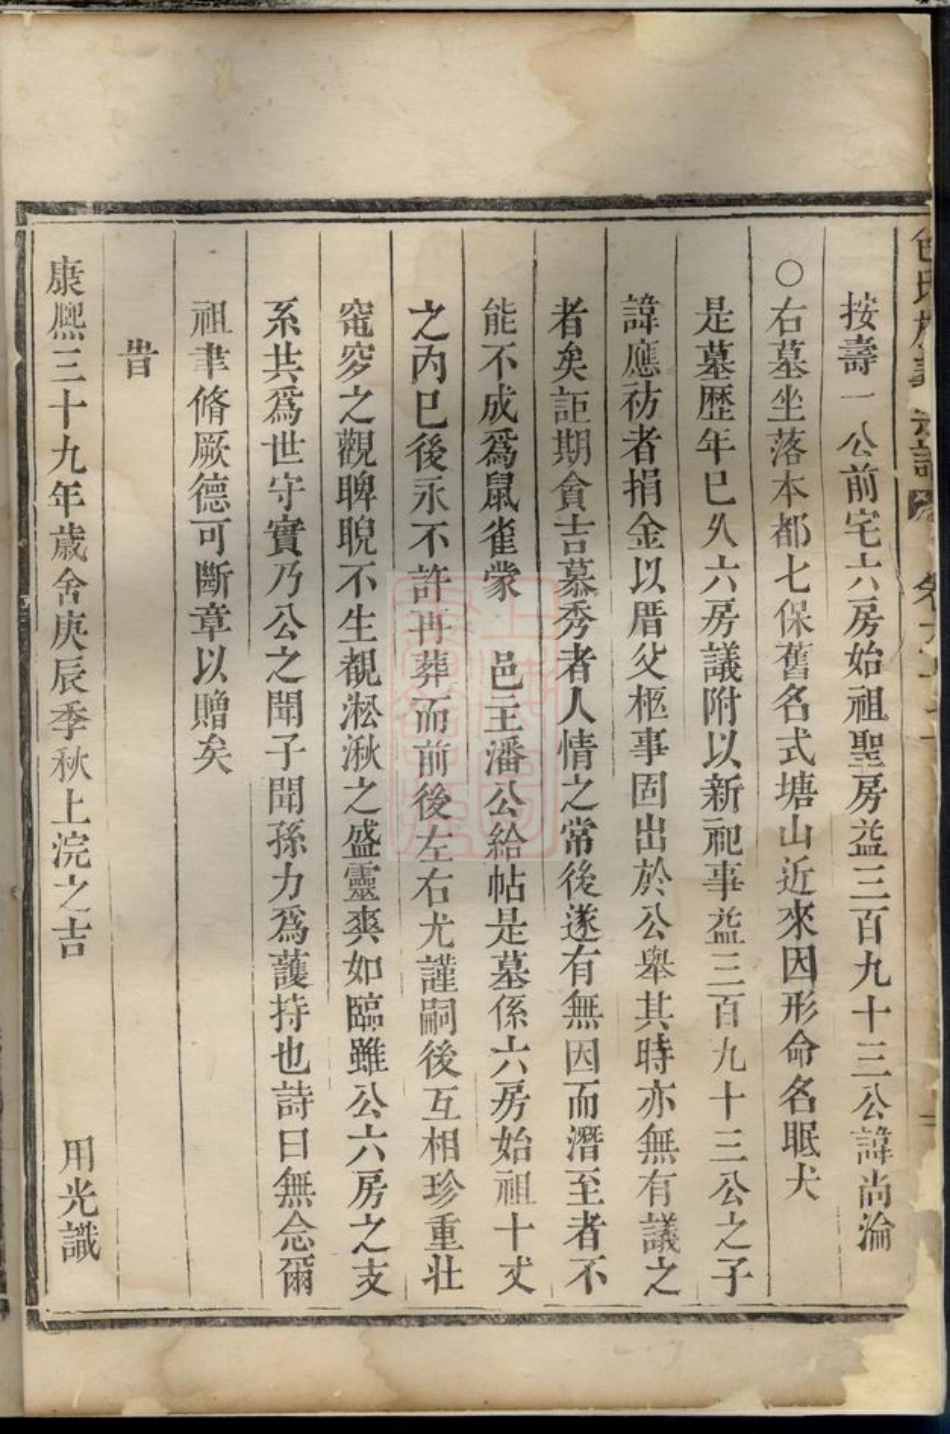 按壽一公前宅六房始祖聖房益三百九十三公諱尚淪
○右墓坐落本都七保舊名式塘山近來因形命名眠犬
是墓歷年已久六房議附以新祀事益三百九十三公之子
諱應祊者捐金以厝父柩事固出於公舉其時亦無有議之
者矣詎期貪吉慕秀者人情之常後遂有無因而潛至者不
能不成爲鼠雀蒙 邑主潘公給帖是墓係六房始祖十丈
之內已後永不許再葬而前後左右尤謹嗣後互相珍重壯
窀穸之觀睥睨不生覩淞湫之盛靈爽如臨雖公六房之支
系共爲世守實乃公之聞子聞孫力爲護持也詩曰無念爾
祖聿脩厥德可斷章以贈矣
旹
康熙三十九年歲舍庚辰季秋上浣之吉 用光識